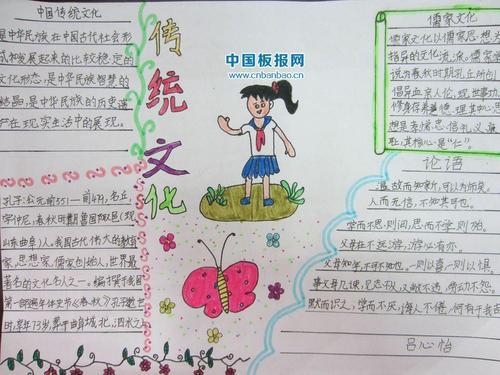 中国传统文化
是中华民族在中国古代社会形
成和发展起来的比较稳定的
文化形态,是中华民族智慧的
结晶,是中华民族的历史遗
产在现实生活中的展现。
传统文化
中国板报网
www.cnbanbao.cn
儒家文化
儒家文化以儒家思想为
指导的文化流派。儒家
说为春秋时期孔丘所创
倡导血亲人伦、现世事功、
修身存养
想是孝悌、忠、信、礼、义
耻,其核心是“仁”
孔子:公元前551—前479,名丘
字仲尼,春秋时期鲁国
山东曲阜)人。我国古代伟大的教育
家、思想家,儒家创始人,世界最
著名的文化名人之一。编撰了我国
第一部编年体史书《春秋》孔子
时,年73岁,葬于曲阜城北,泗水之
论语
温故而知新,可以为师矣。
人而无信,不知其可也。
学而不思则罔,思而不学则殆。
父母在不远游,游必有方。
父母知年,不可不知也。一则以喜,一则以惧
事父母几谏,见志不从,又敬不违,劳而不怨。
默而识之,学而不厌,诲人不倦,何有于我
吕心怡